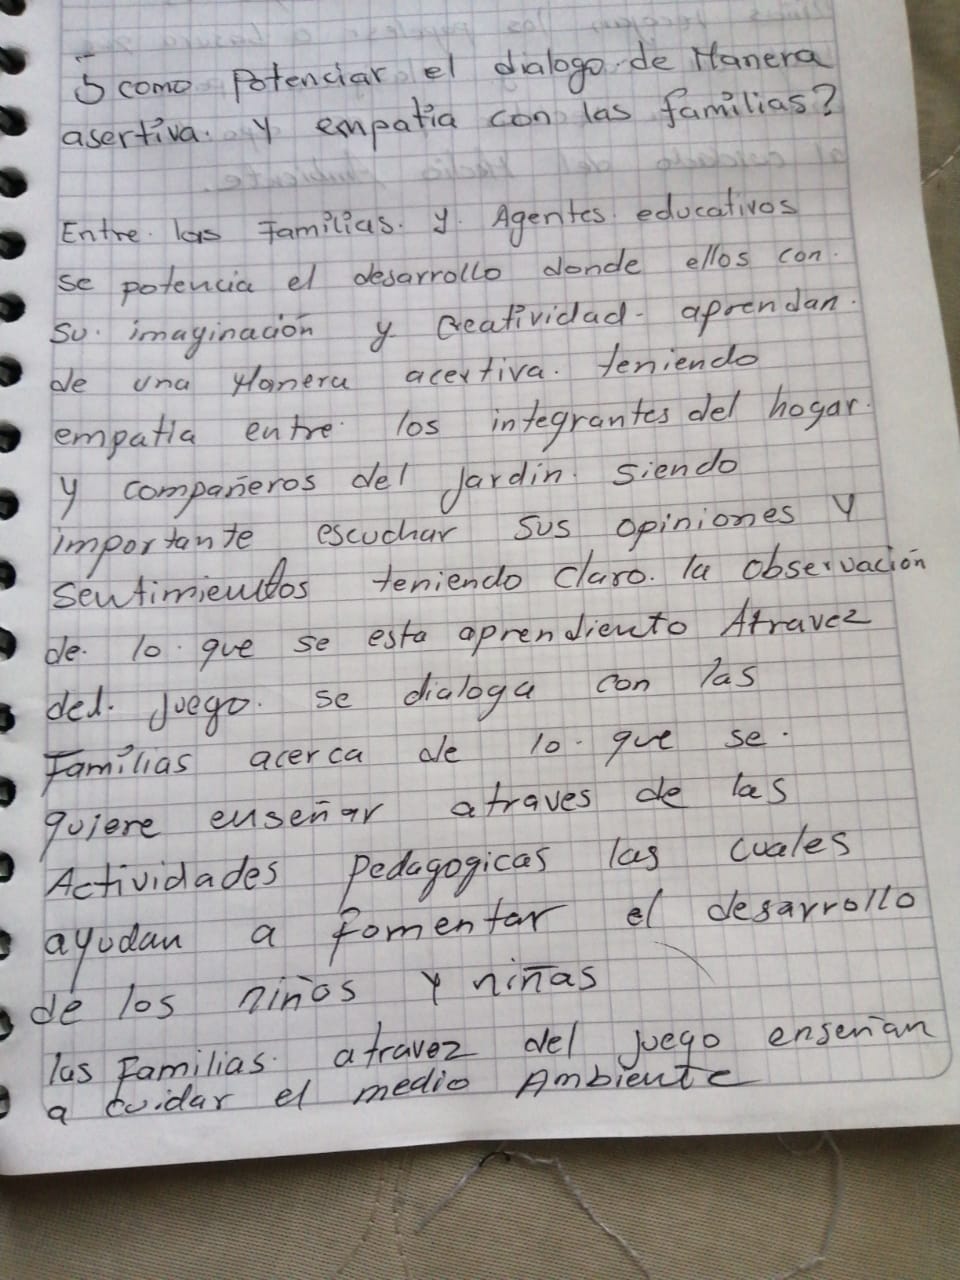 ¿como Potenciar el dialogo de Manera
asertiva. y empatia con las familias?
Entre las Familias. y. Agentes educativos
se potencia el desarrollo donde ellos con.
su imaginación y creatividad- aprendan.
de una Manera acertiva. teniendo
empatia entre los integrantes del hogar.
y compañeros del Jardin. siendo
importante escuchar sus opiniones y
sentimientos teniendo claro. la observación
de lo que se esta aprendiento Atravez
del. juego. se dialoga con las
Familias acerca de lo que se.
quiere enseñar atraves de las
Actividades Pedagogicas las cuales
ayudan a fomentar el desarrollo
de los niños y niñas
las Familias. atravez del juego enseñan
a cuidar el medio Ambiente